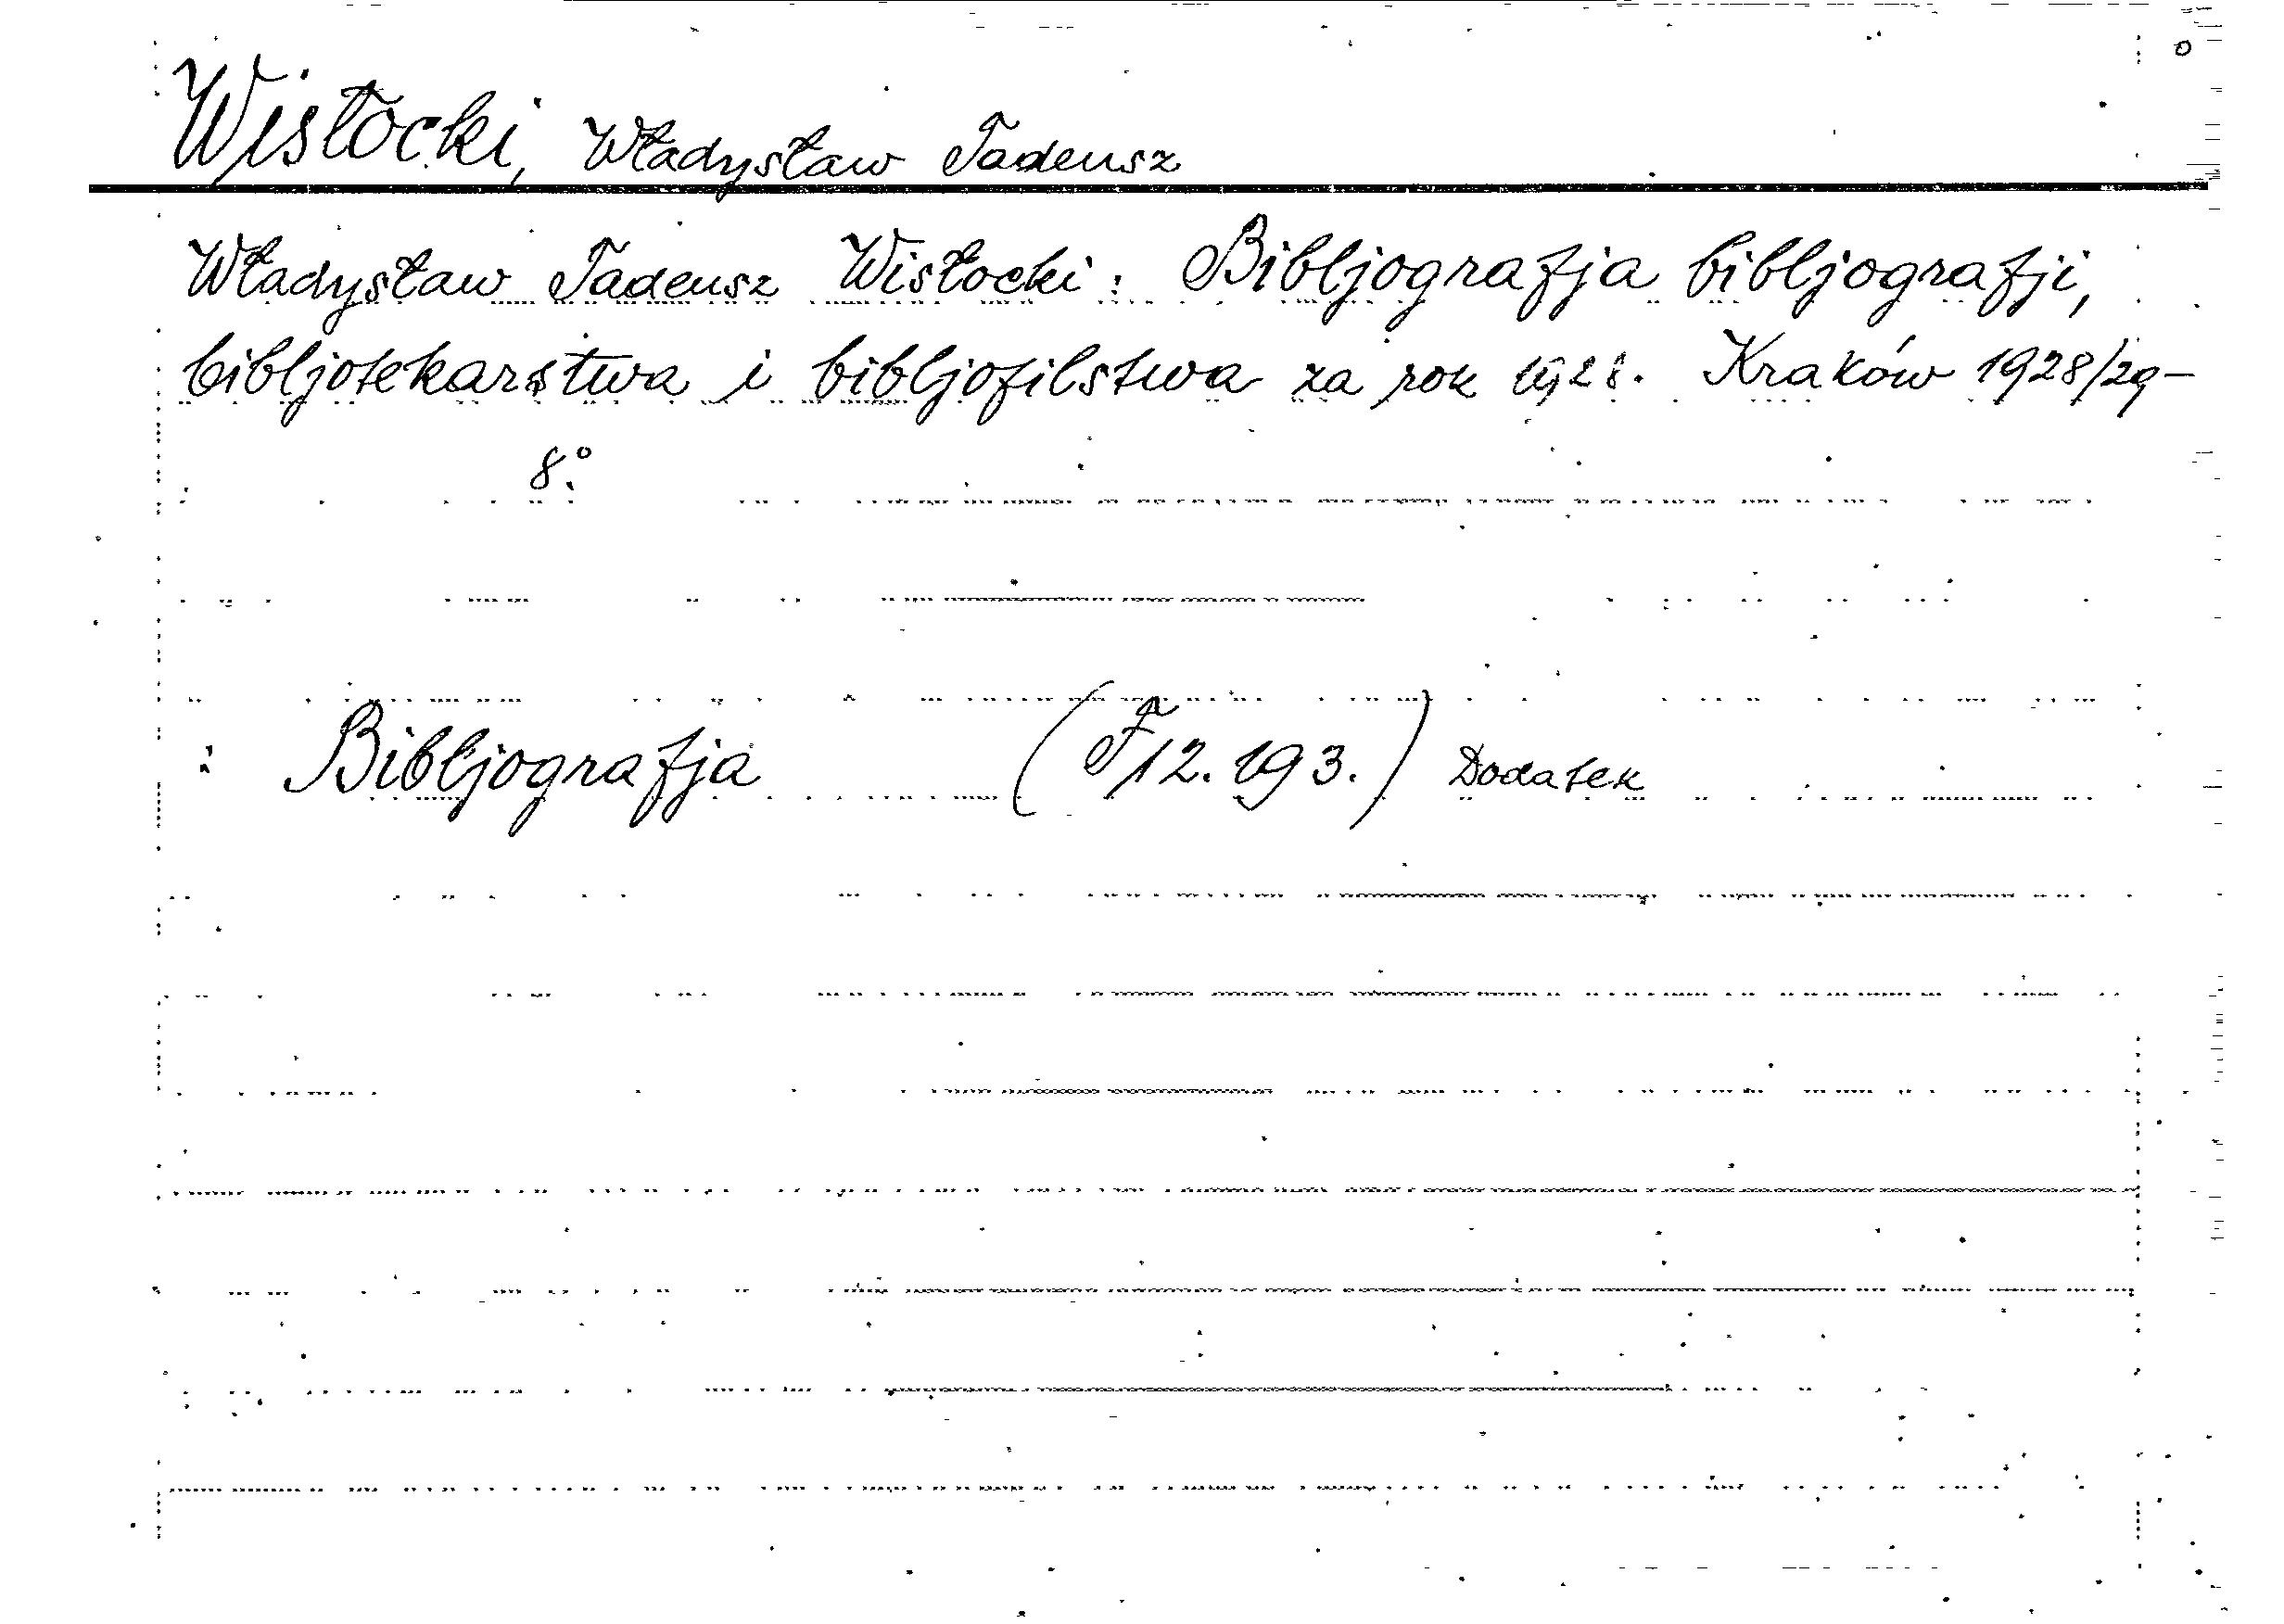 Wisłocki, Władysław Tadeusz
Władysław Tadeusz Wisłocki: Bibljografja bibljografji,
bibljotekarstwa i bibljofilstwa za rok 1928. Kraków 1928/29-
8°.
Bibljografja (F12.193.) Dodatek